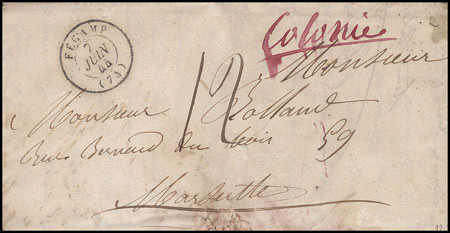 FÉCAMP
7
JUIN
44
(74)
Colonie
Monsieur
12
Monsieur Rolland
Rue Bernard du bois 59
Marseille